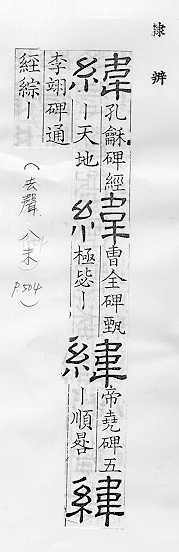 隸辨
緯
孔龢碑經
｜天地
緯
曹全碑甄
極毖｜
緯
帝堯碑五
｜順晷
緯
李翊碑通
經綜｜
（去聲 八未 P504）